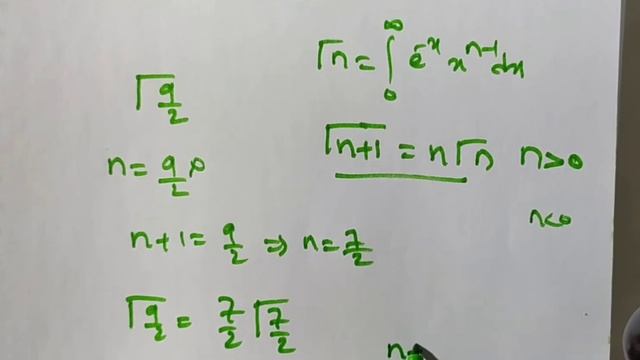 Γn = ∫₀^∞ e^-x x^n-1 dx
Γ9/2
Γn+1 = nΓn n>0
n = 9/2 >0
n<0
n+1 = 9/2 ⇒ n = 7/2
Γ9/2 = 7/2 Γ7/2
n